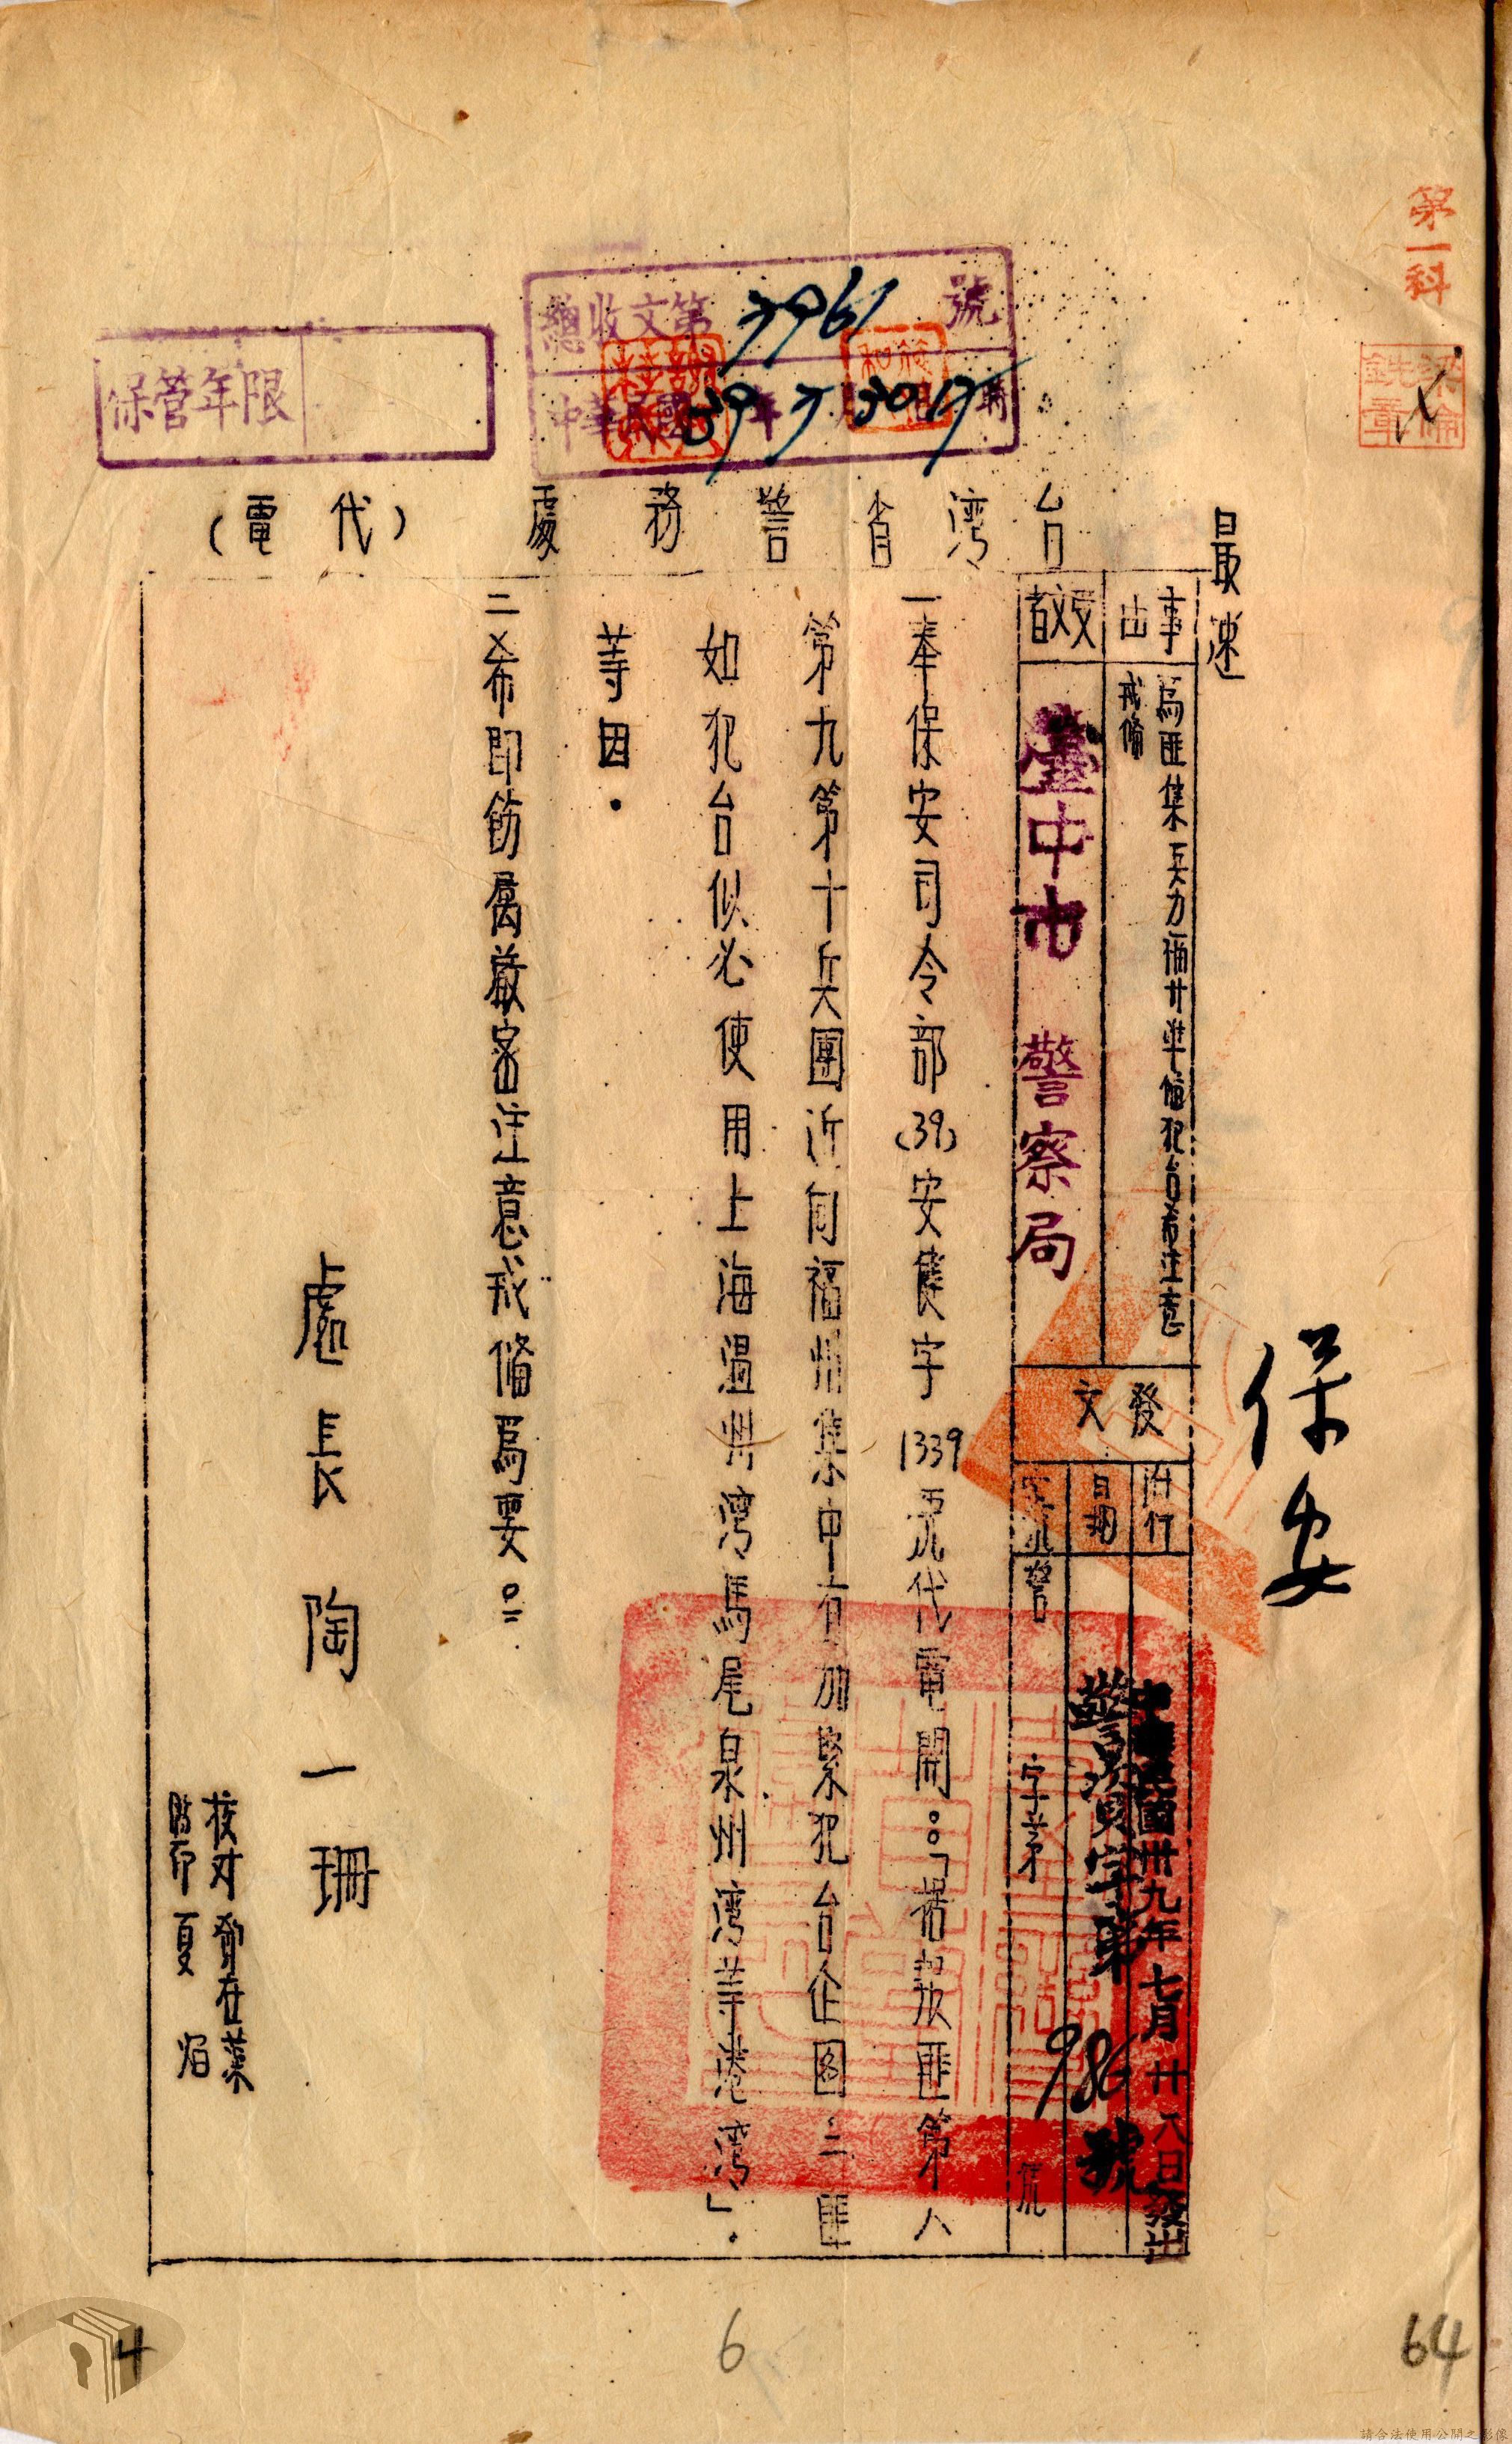 第一科
最速
保安
總收文第 7961 號
中華民國 39年 7月 30日 17時
保管年限
台灣省警務處（代電）
事由
為匪集兵力福州準備犯台希注意
戒備
受文者
臺中市警察局
發文
附件
日期
中華民國卅九年七月廿八日發出
警濱字第 986 號
字號
警 字第 號
一奉保安司令部(39)安健字1339號代電開：「据报匪第八
第九第十兵團近向福州集中有加緊犯台企图二匪
如犯台似必使用上海溫州灣馬尾泉州灣等港灣」.
等因．
二希即飭屬嚴密注意戒備為要。
處長 陶一珊
校對
監印 夏
4
6
64
請合法使用公開之影像